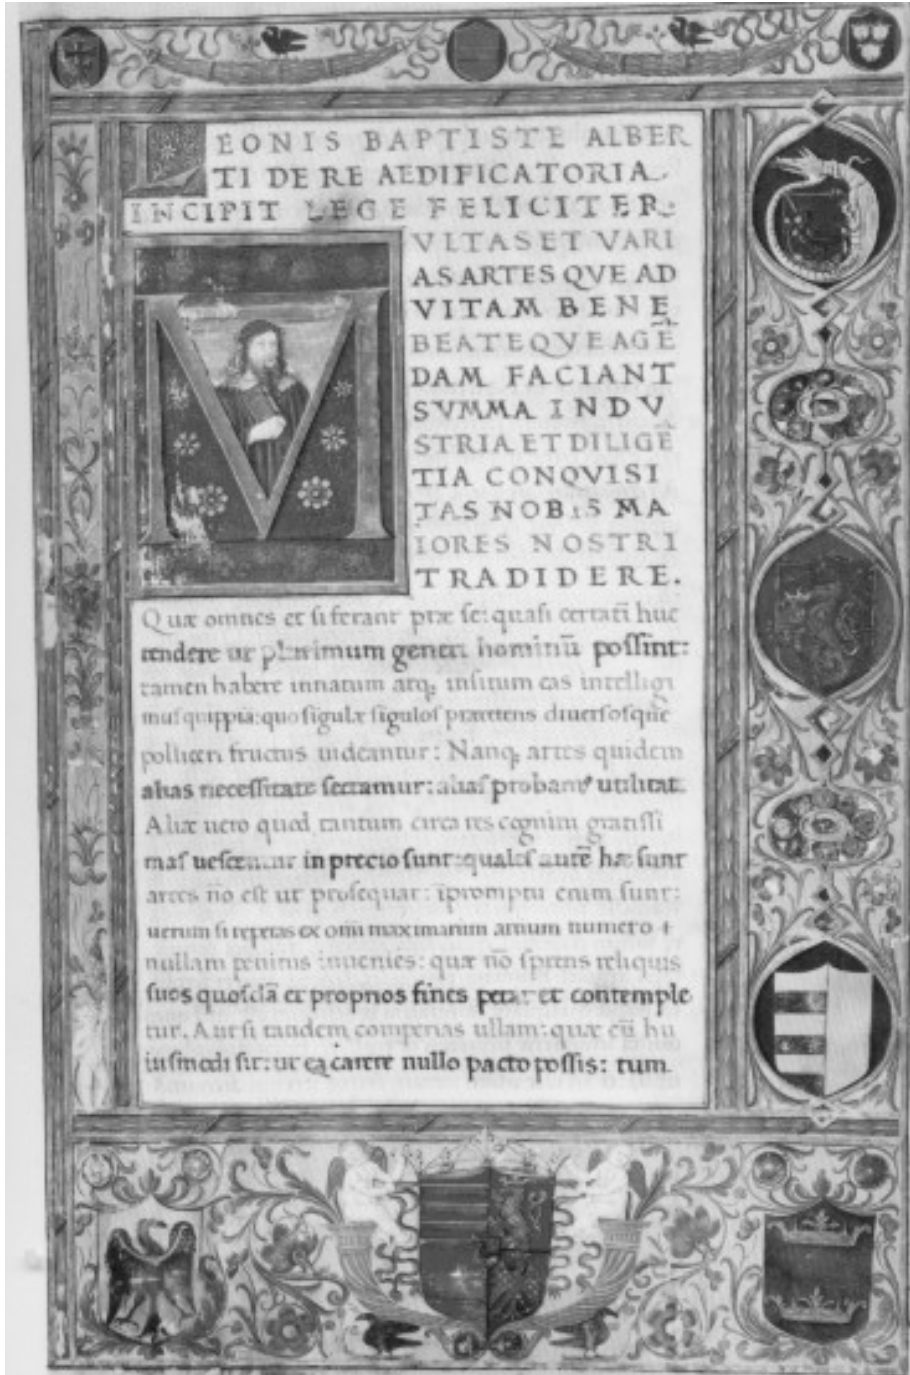 LEONIS BAPTISTE ALBER
TI DE RE AEDIFICATORIA.
INCIPIT LEGE FELICITER:
MVLTAS ET VARI
AS ARTES QVE AD
VITAM BENE
BEATEQVE AGĒ
DAM FACIANT
SVMMA INDV
STRIA ET DILIGĒ
TIA CONQVISI
TAS NOBIS MA
IORES NOSTRI
TRADIDERE.
Quæ omnes et si ferant præ se: quasi certatī huc
tendere ut plurimum generi hominū possint:
tamen habere innatum atq; insitum eas intelligi
mus quippiā: quo sīgulæ sīgulos prætetens diuersosque
polliceri fructus uideantur: Nanq; artes quidem
alias necessitate sectamur: alias probam9 utilitat
Aliæ uero quod tantum circa res cognitu gratissi
mas in precio sunt: quales autē hæ sunt
artes nō est ut prosequar: īpromptu enim sunt:
uerum si repetas ex omī maximarum artium numero
nullam penitus inuenies: quæ nō spretis reliquis
suos quosdā et proprios fines petat et contemple
tur. Aut si tandem comperias ullam: quæ cū hu
iusmodi sit: ut ea carere nullo pacto possis: tum